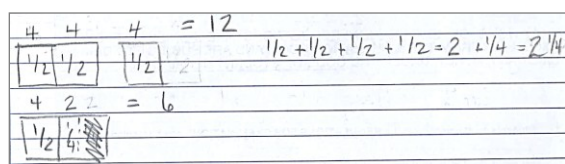 4 4 4 = 12
1/2 1/2 1/2 1/2 + 1/2 + 1/2 + 1/2 = 2 + 1/4 = 2 1/4
4 2 2 = 6
1/2 1/4